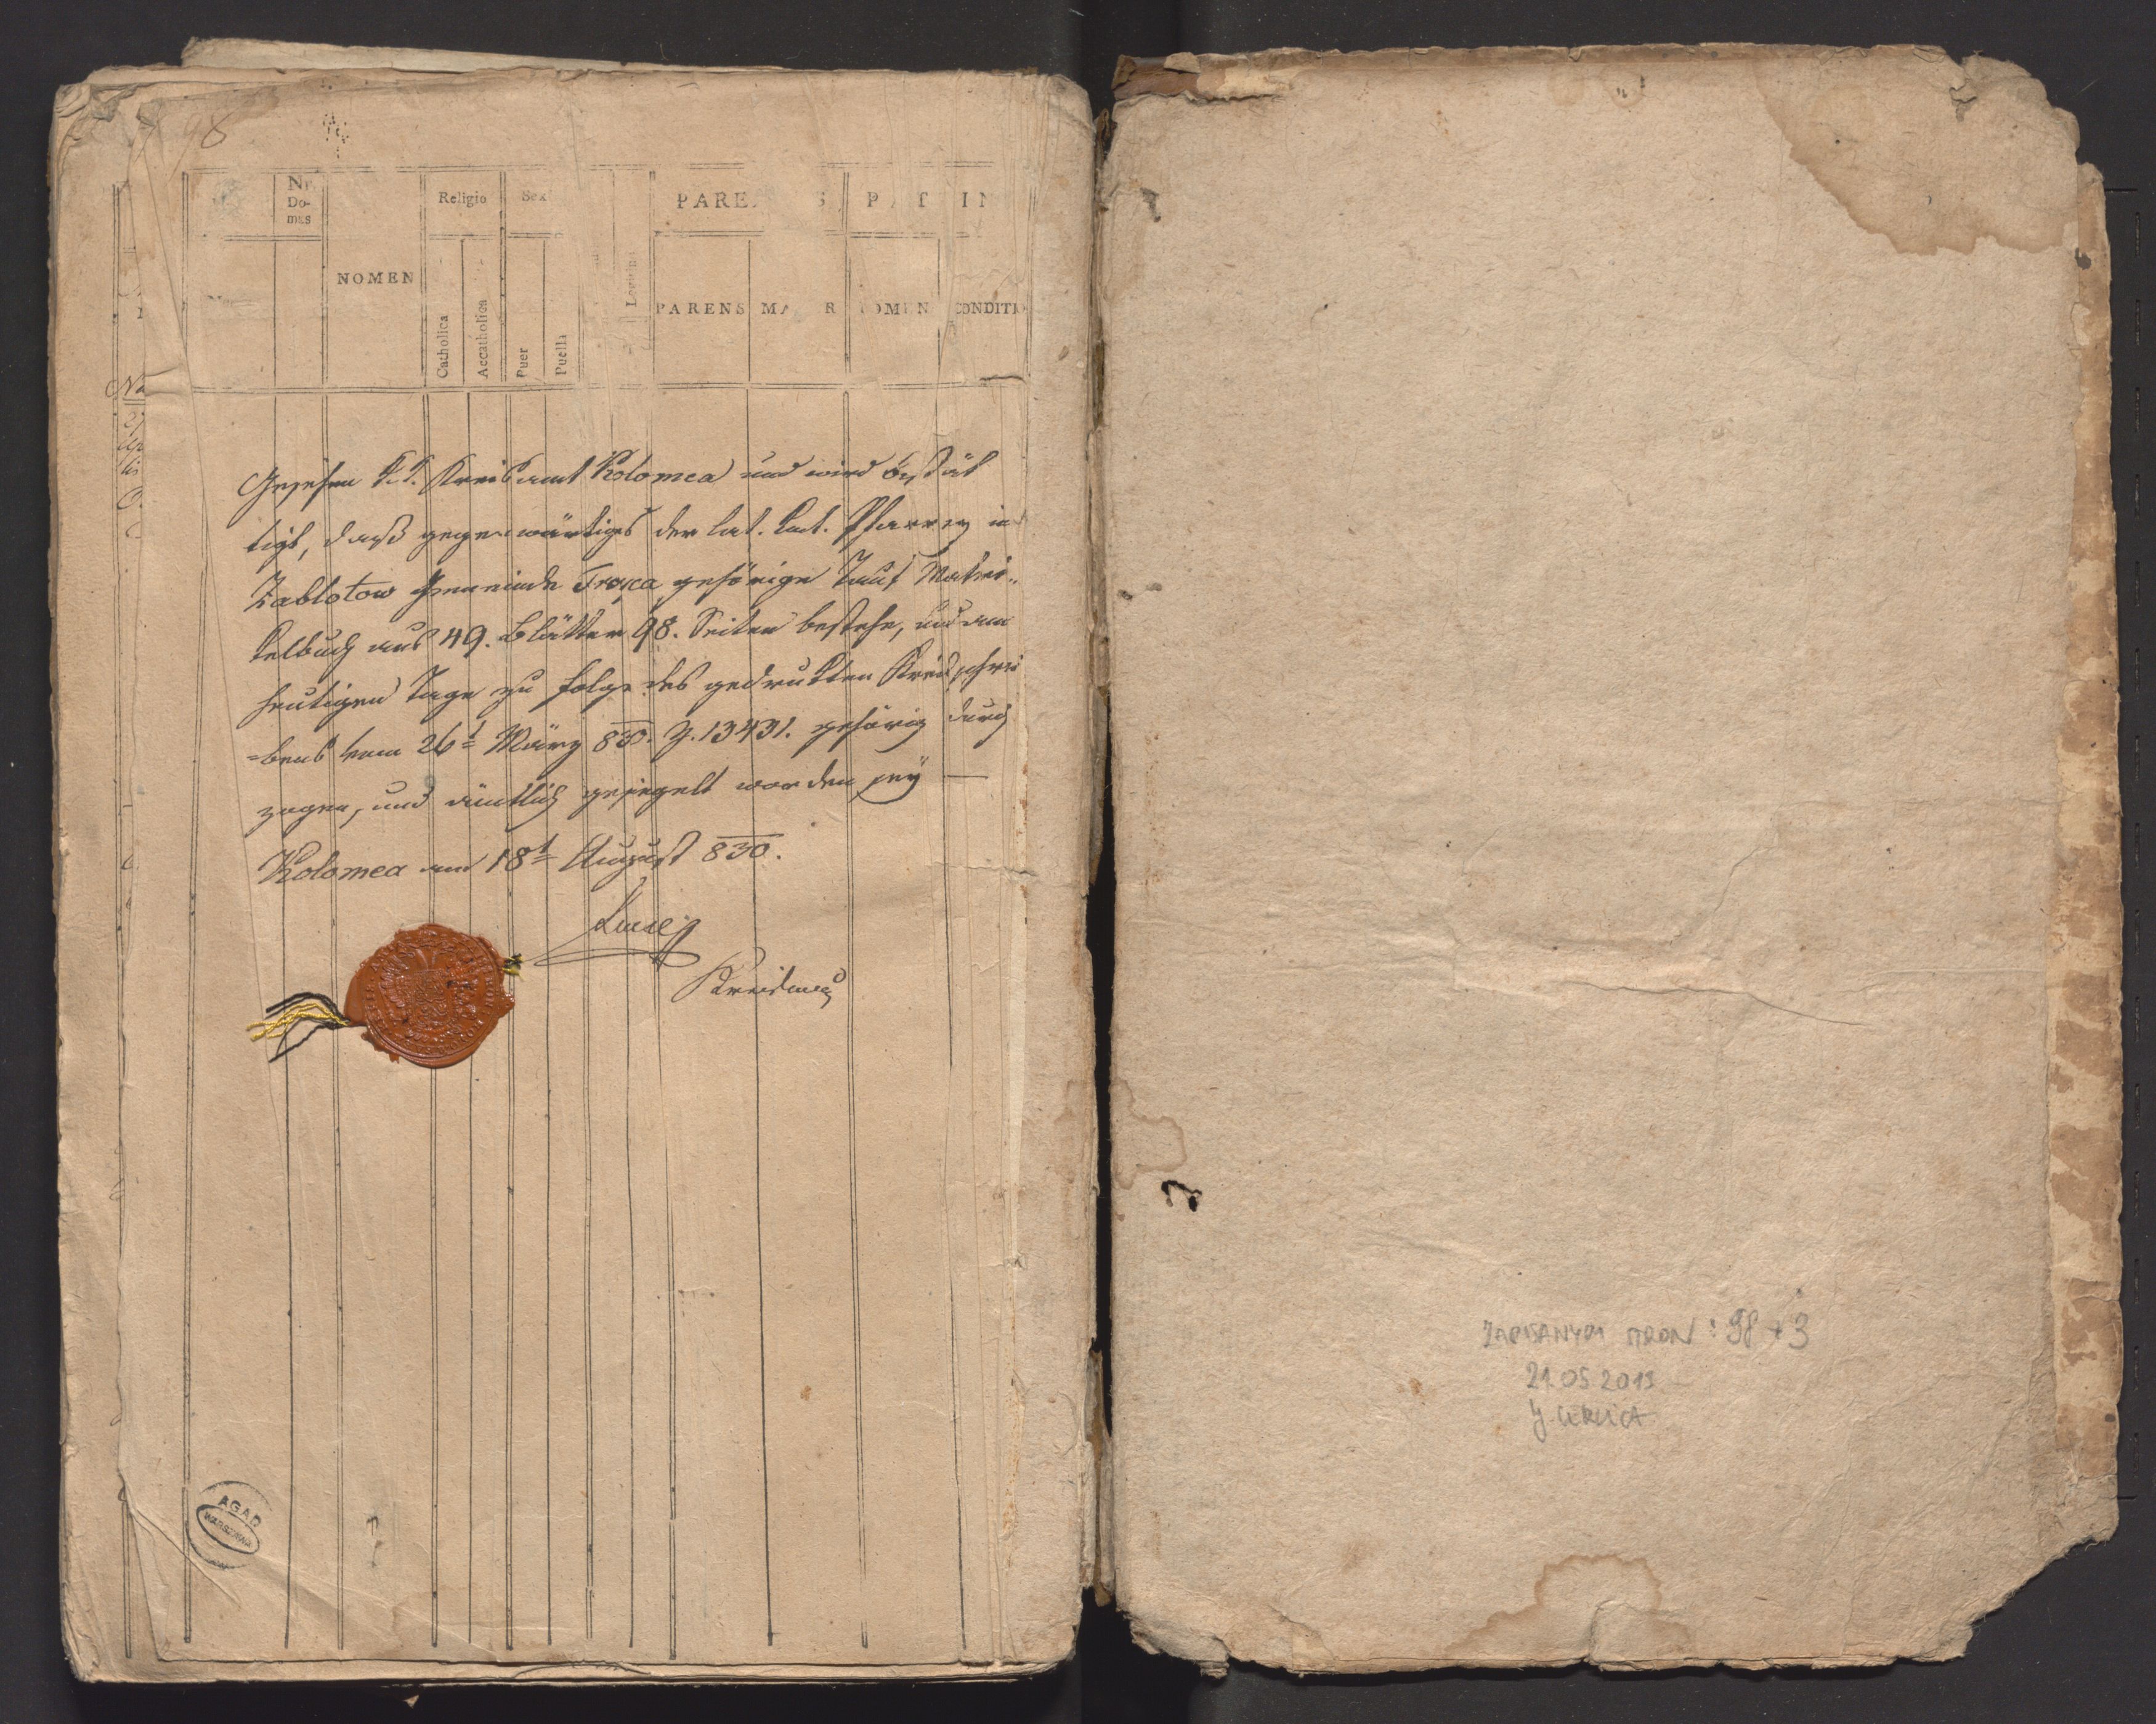 98
Nr.
Do-
mus
NOMEN
Religio
Catholica
Accatholica
Sex
Puer
Puella
PARE S
PARENS
MA R
P T IN
OMEN
CONDITIO
Gesehen k.k. Kreisamt Kolomea und wird bestät
tigt, daß gegenwärtiges der lat. kat. Pfarrey in
Zablotow Gemeinde Troyca gehörige Tauf Matri-
kelbuch aus 49. Blätter 98. Seiten bestehe, und am
heutigen Tage zu folge des gedrukten Kreisschrei
=bens vom 26t März 830. Z. 13431. gehörig durch
zogen, und ämtlich gesiegelt worden sey —
Kolomea am 18t August 830.
AGAD
WARSZAWA
ZAPISANYCH STRON: 98 + 3
21.05.2013